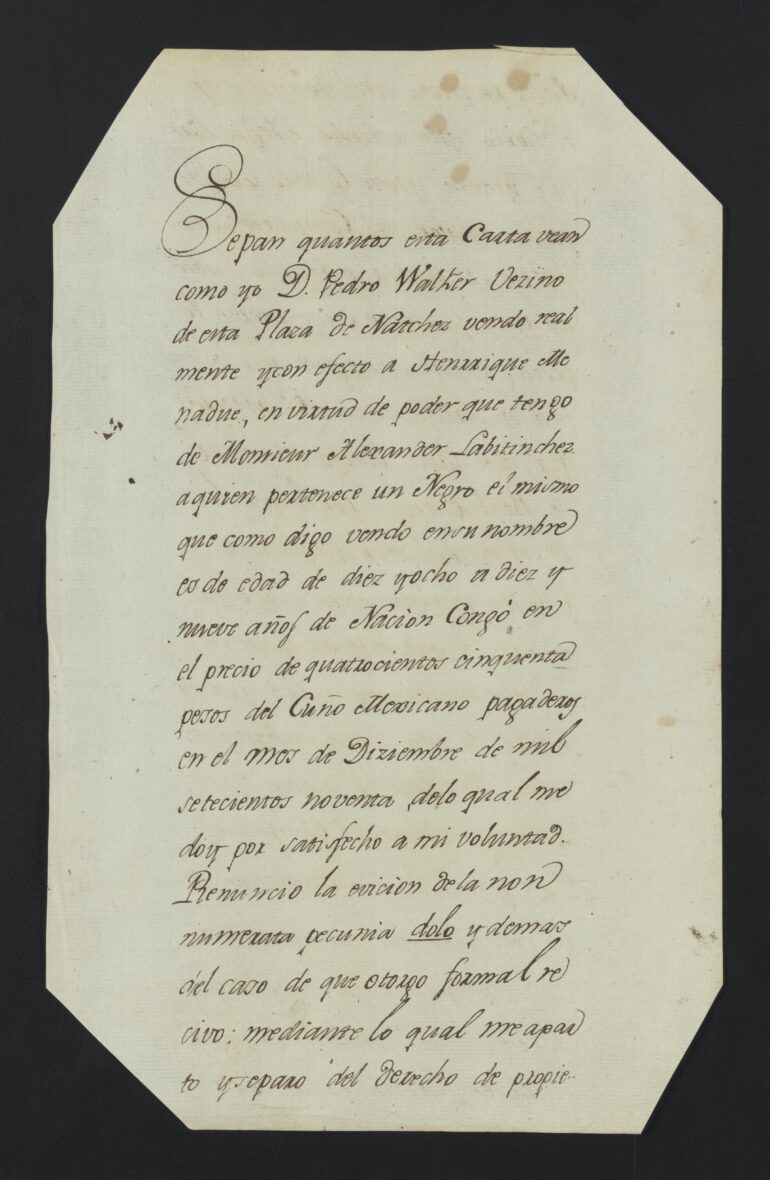 Sepan quantos esta Carta vean
como yo D. Pedro Walker Vezino
de esta Plaza de Natchez vendo real
mente ycon efecto a Henrrique Me
nadue, en virtud de poder que tengo
de Monsieur Alexander Labitinchez
aquien pertenece un Negro el mismo
que como digo vendo ensu nombre
es de edad de diez yocho a diez y
nueve años de Nacion Congó en
el precio de quatrocientos cinquenta
pesos del Cuño Mexicano pagaderos
en el mes de Diziembre de mil
setecientos noventa delo qual me
doy por satisfecho a mi voluntad.
Renuncio la evicion dela non
numerata pecunia dolo y demas
del caso de que otorgo formal re
civo: mediante lo qual me apar
to ysepaxo del derecho de propie-